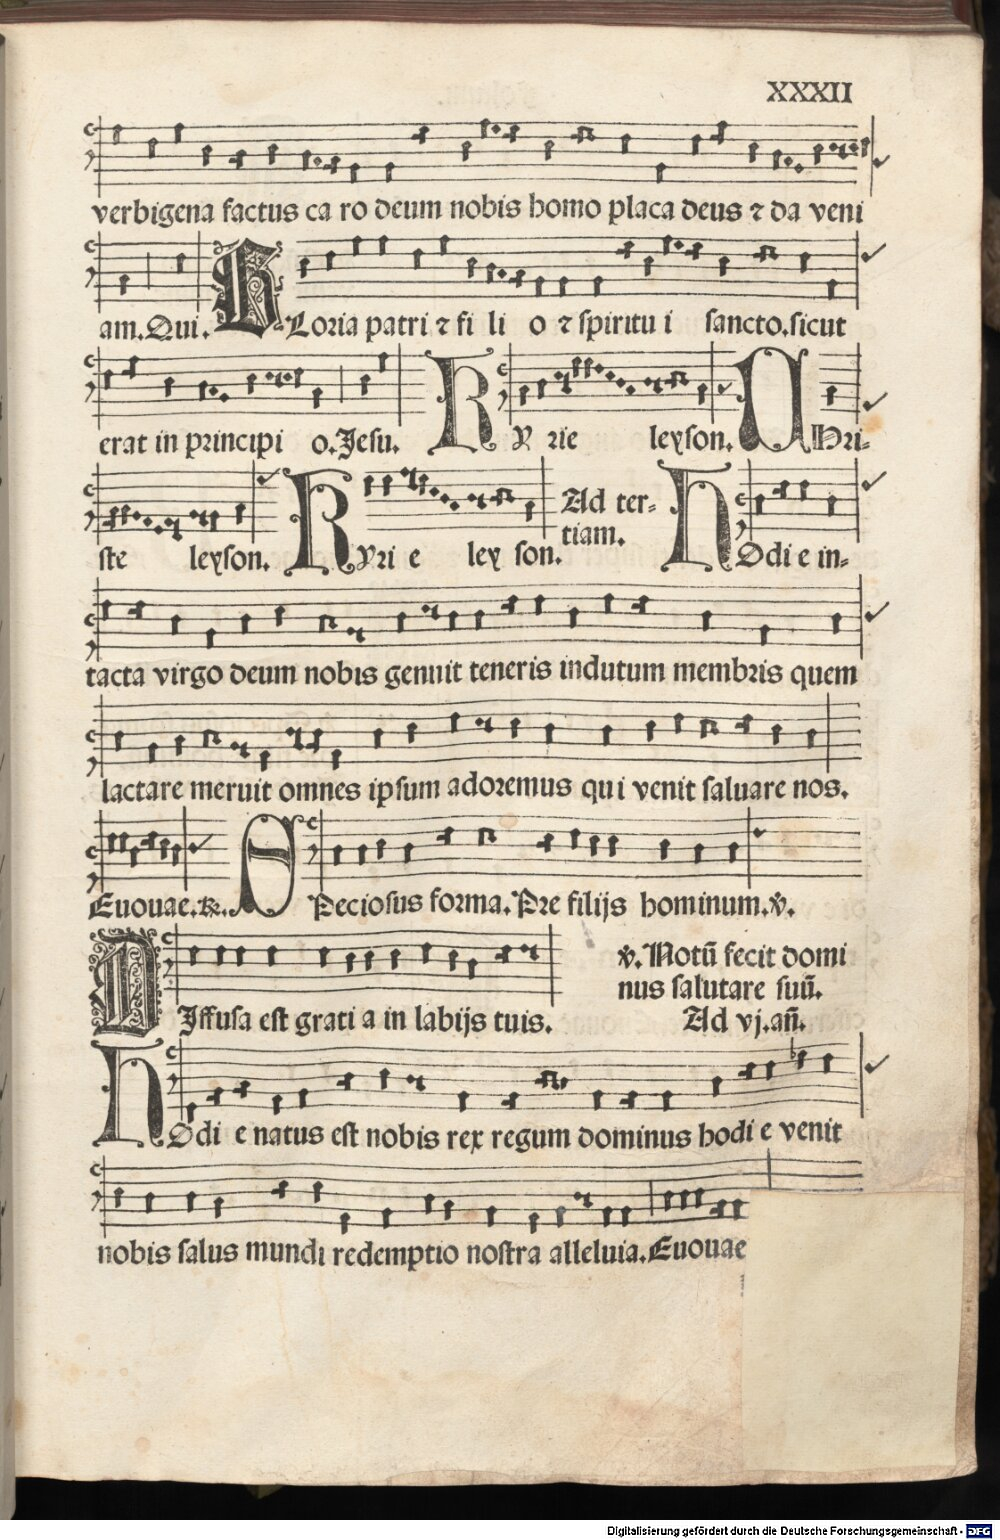 XXXII
verbigena factus ca ro deum nobis homo placa deus ⁊ da veni
am. Qui. GLoria patri ⁊ fi li o ⁊ spiritu i sancto. sicut
erat in principi o. Jesu. KY rie leyson. CHri-
ste leyson. KYri e ley son. Ad ter-
tiam. HOdi e in-
tacta virgo deum nobis genuit teneris indutum membris quem
lactare meruit omnes ipsum adoremus qui venit saluare nos.
Euouae. ℟. SPeciosus forma. Pre filijs hominum. ℣.
DIffusa est grati a in labijs tuis. ℣. Notū fecit domi
nus salutare suū.
Ad vj. añ.
HOdi e natus est nobis rex regum dominus hodi e venit
nobis salus mundi redemptio nostra alleluia. Euouae
Digitalisierung gefördert durch die Deutsche Forschungsgemeinschaft - DFG